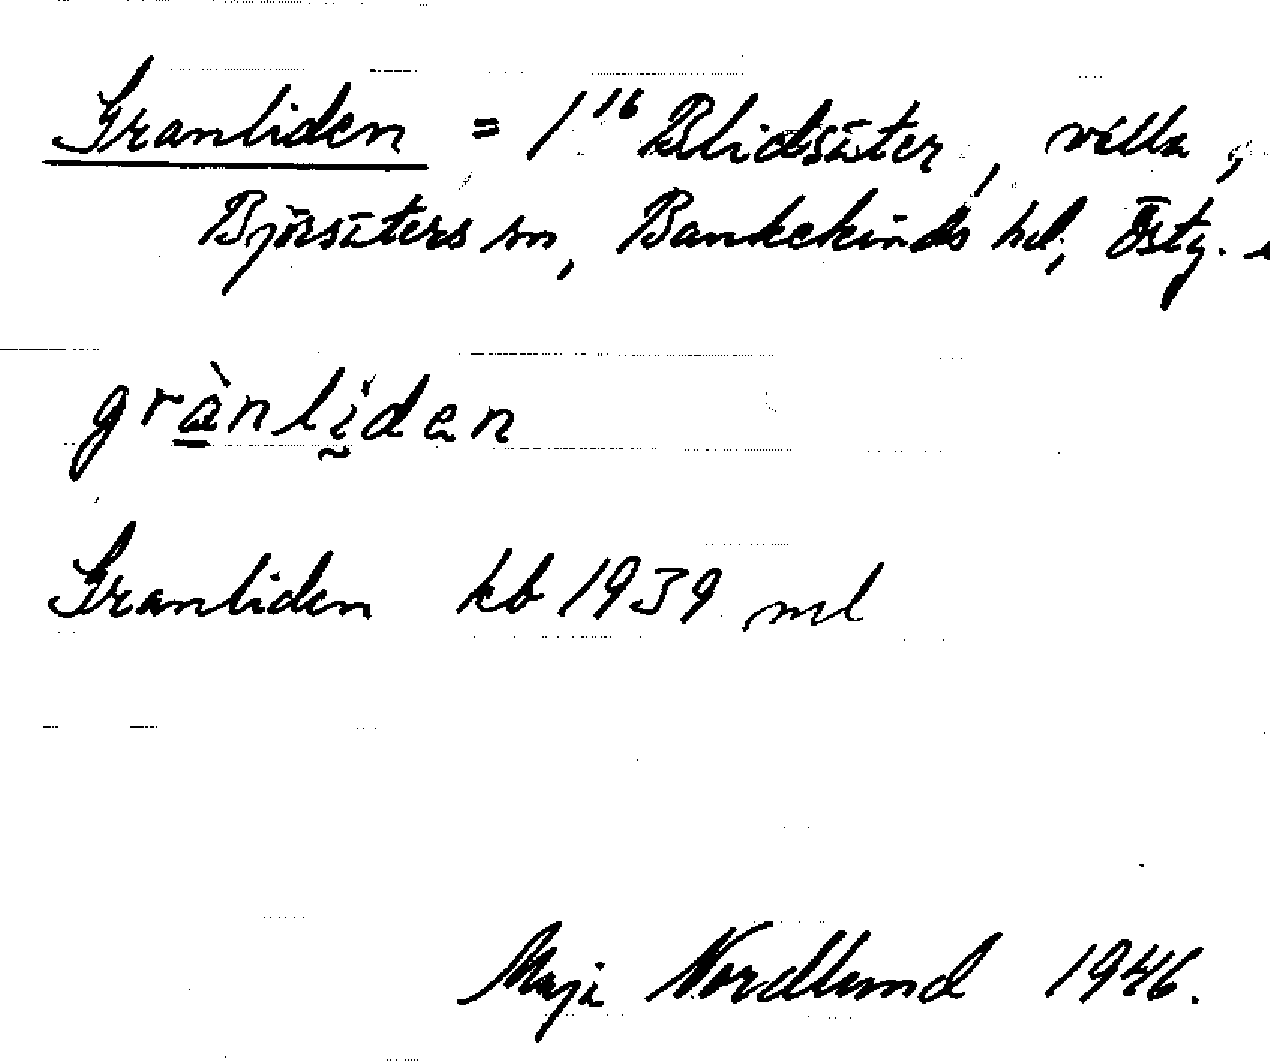 Granliden = 1¹⁶ Blidsäter, villa,
Björsäters sn, Bankekinds hd, Östg.
grànliden
Granliden kb 1939 ml
Maja Nordlund 1946.